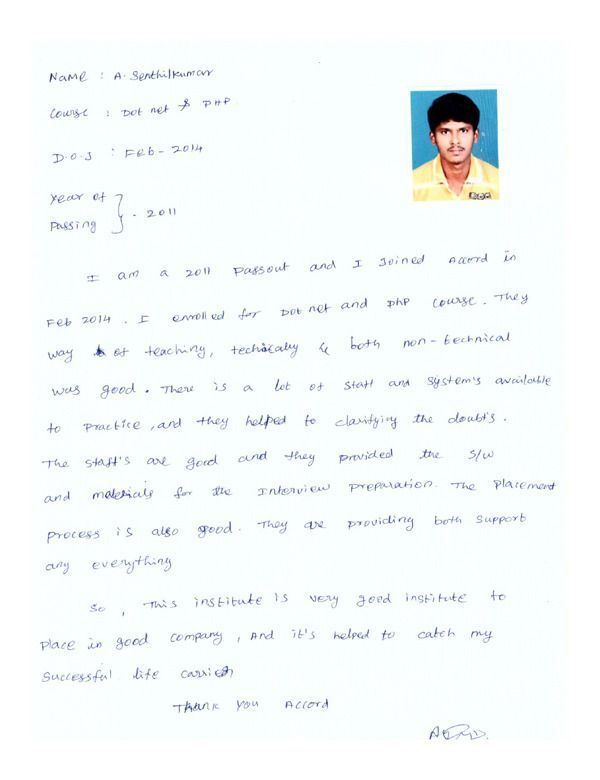 Name : A. Senthilkumar
Course : Dot net & PHP
D.O.J : Feb - 2014
Year of
Passing } . 2011
I am a 2011 Passout and I Joined Accord in
Feb 2014 . I enrolled for Dot net and PhP course . They
way of teaching, technically & both non-technical
was good . There is a lot of staff and system's available
to Practice , and they helped to clarifying the doubt's .
The staff's are good and they provided the S/W
and materials for the Interview Preparation. The Placement
process is also good. They are providing both Support
any everything
So , This institute is very good institute to
Place in good company , And it's helped to catch my
Successful life carrier
Thank you Accord